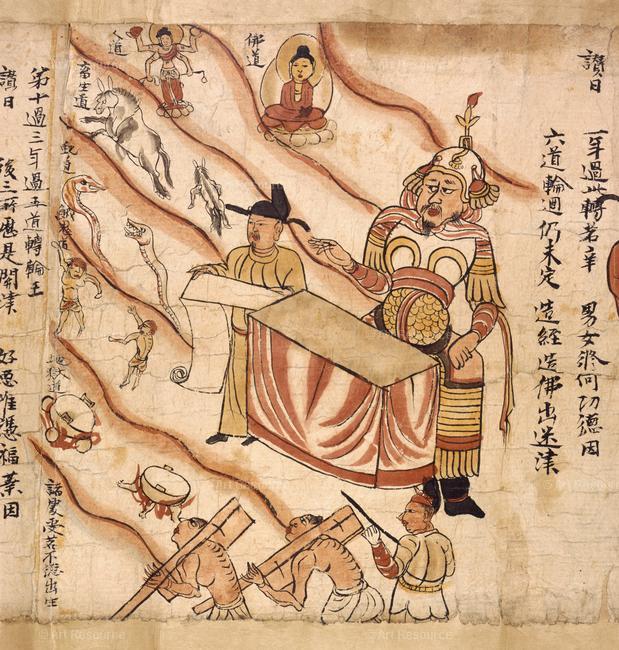 讃曰
一年過此轉苦辛 男女修何功德因
六道輪迴仍未定 造經造佛出迷津
佛道
人道
畜生道
餓鬼道
地獄道
受苦不 出生
第十過三年過五道轉輪王
讃曰
後三所歷是關津 好惡唯憑福業因
© Art Resource
Art Resource